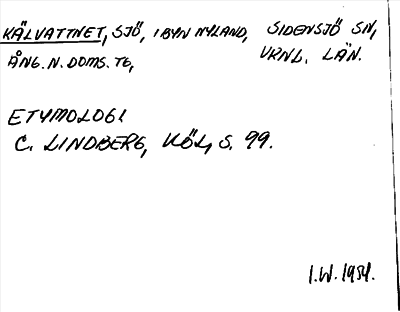 KÄLVATTNET, SJÖ, I BYN NYLAND, SIDENSJÖ SN,
ÅNG. N. DOMS. TG, VRNL. LÄN.
ETYMOLOGI
C. LINDBERG, KÖL, S. 99.
I.W. 1954.